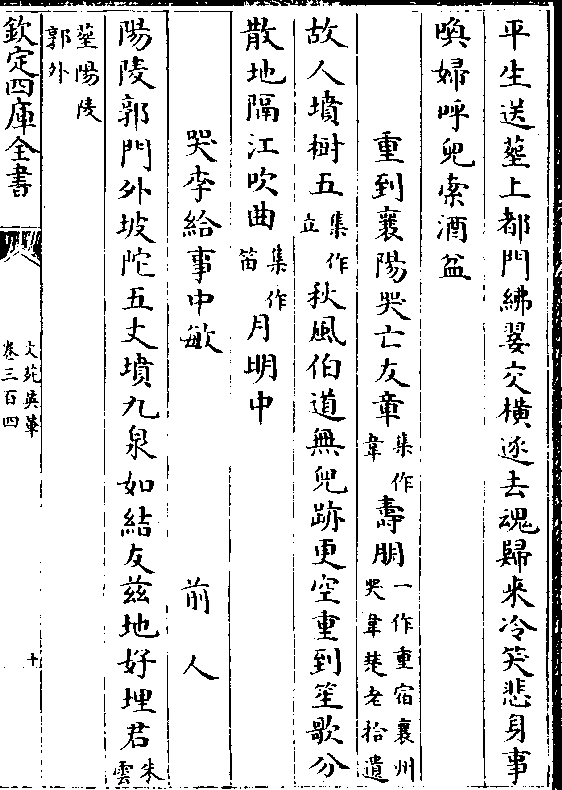 平生送塟上都門紼翣交横逐去魂歸來冷笑悲身事
喚婦呼兒索酒盆
重到襄陽哭亡友章集作韋壽朋一作重宿襄州哭韋楚老拾遺
故人墳樹五集作立秋風伯道無兒跡更空重到笙歌分
散地隔江吹曲集作笛月明中
哭李給事中敏
前人
陽陵郭門外坡陀五丈墳九泉如結友兹地好埋君朱雲
塟陽陵郭外
欽定四庫全書
文苑英華
卷三百四
十